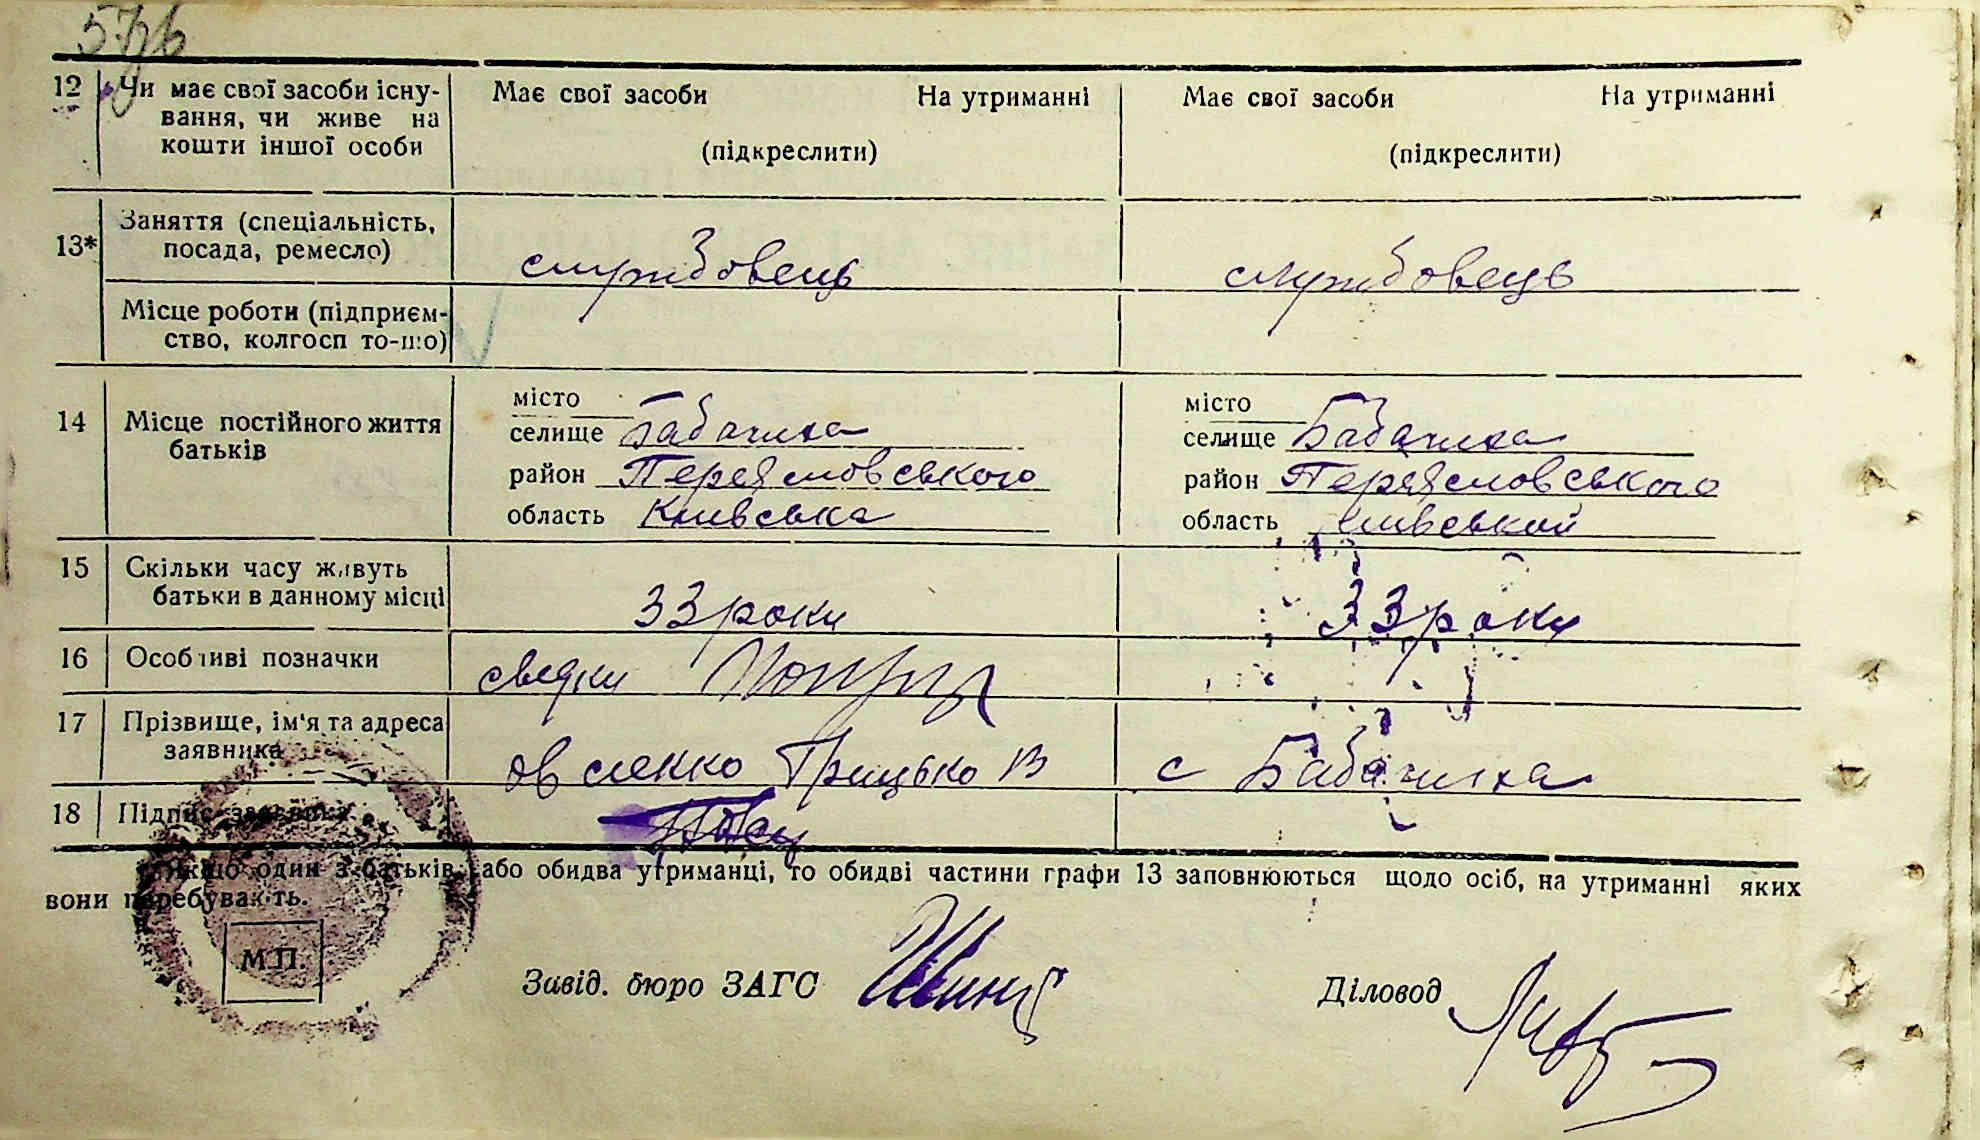 12 Чи має свої засоби існу- Має свої засоби На утриманні Має свої засоби На утриманні
вання, чи живе на
кошти іншої особи (підкреслити) (підкреслити)
Заняття (спеціальність,
13* посада, ремесло) службовець службовець
Місце роботи (підприєм-
ство, колгосп то-що)
місто місто
14 Місце постійного життя селище Бабачиха селище Бабачиха
батьків
район Переясловського район Переясловського
область Київська область Київський
15 Скільки часу живуть
батьки в данному місці 33 роки 33 роки
16 Особливі позначки сведки
17 Прізвище, ім'я та адреса
заявника Овсієнко Грицько В с Бабачиха
18 Підпис заявника
Якщо один з батьків, або обидва утриманці, то обидві частини графи 13 заповнюються щодо осіб, на утриманні яких
вони перебувають.
МП
Завід. бюро ЗАГС Діловод